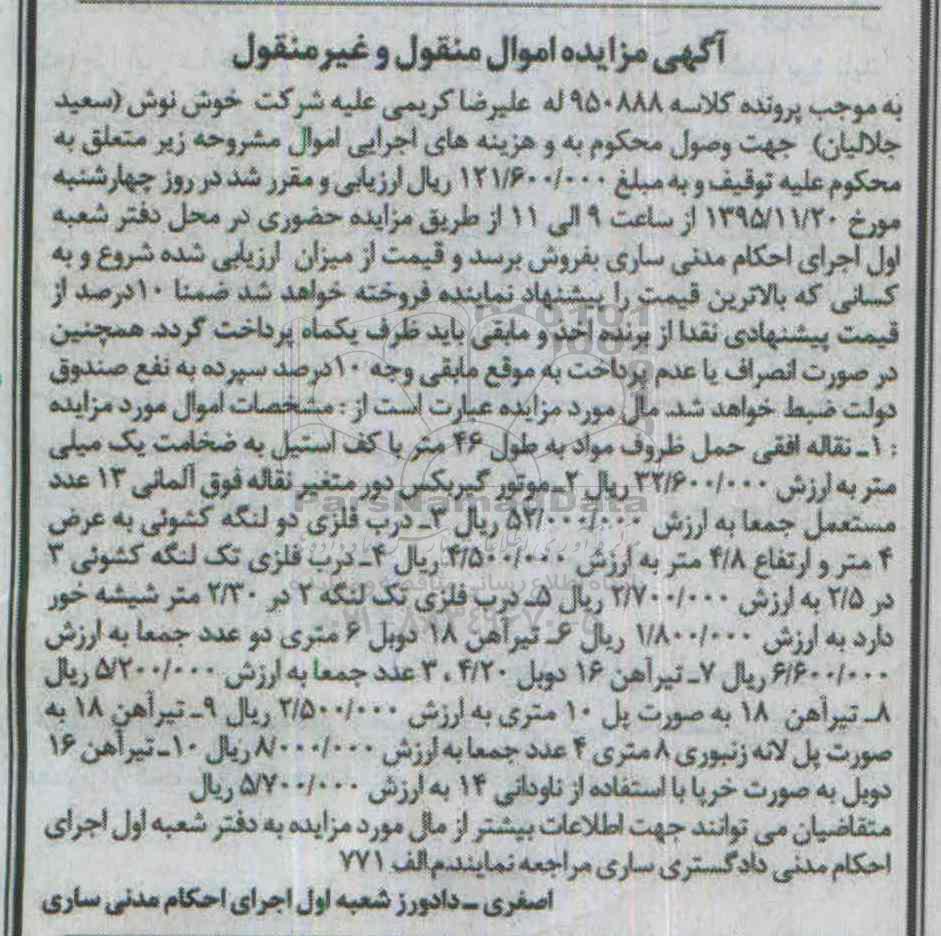 آگهی مزایده اموال منقول و غیرمنقول
به موجب پرونده کلاسه ۹۵۰۸۸۸ له علیرضا کریمی علیه شرکت خوش نوش (سعید
جلالیان) جهت وصول محکوم به و هزینه های اجرایی اموال مشروحه زیر متعلق به
محکوم علیه توقیف و به مبلغ ۱۲۱/۶۰۰/۰۰۰ ریال ارزیابی و مقرر شد در روز چهارشنبه
مورخ ۱۳۹۵/۱۱/۲۰ از ساعت ۹ الی ۱۱ از طریق مزایده حضوری در محل دفتر شعبه
اول اجرای احکام مدنی ساری بفروش برسد و قیمت از میزان ارزیابی شده شروع و به
کسانی که بالاترین قیمت را پیشنهاد نماینده فروخته خواهد شد ضمنا ۱۰درصد از
قیمت پیشنهادی نقدا از برنده اخذ و مابقی باید ظرف یکماه پرداخت گردد. همچنین
در صورت انصراف یا عدم پرداخت به موقع مابقی وجه ۱۰درصد سپرده به نفع صندوق
دولت ضبط خواهد شد. مال مورد مزایده عبارت است از : مشخصات اموال مورد مزایده
: ۱ـ نقاله افقی حمل ظروف مواد به طول ۴۶ متر با کف استیل به ضخامت یک میلی
متر به ارزش ۳۲/۶۰۰/۰۰۰ ریال ۲ـ موتور گیربکس دور متغیر نقاله فوق آلمانی ۱۳ عدد
مستعمل جمعا به ارزش ۵۲/۰۰۰/۰۰۰ ریال ۳ـ درب فلزی دو لنگه کشوئی به عرض
۴ متر و ارتفاع ۴/۸ متر به ارزش ۴/۵۰۰/۰۰۰ ریال ۴ـ درب فلزی تک لنگه کشوئی ۳
در ۲/۵ به ارزش ۲/۷۰۰/۰۰۰ ریال ۵ـ درب فلزی تک لنگه ۲ در ۲/۳۰ متر شیشه خور
دارد به ارزش ۱/۸۰۰/۰۰۰ ریال ۶ـ تیرآهن ۱۸ دوبل ۶ متری دو عدد جمعا به ارزش
۶/۶۰۰/۰۰۰ ریال ۷ـ تیرآهن ۱۶ دوبل ۴/۲۰ ، ۳ عدد جمعا به ارزش ۵/۲۰۰/۰۰۰ ریال
۸ـ تیرآهن ۱۸ به صورت پل ۱۰ متری به ارزش ۲/۵۰۰/۰۰۰ ریال ۹ـ تیرآهن ۱۸ به
صورت پل لانه زنبوری ۸ متری ۴ عدد جمعا به ارزش ۸/۰۰۰/۰۰۰ ریال ۱۰ـ تیرآهن ۱۶
دوبل به صورت خرپا با استفاده از ناودانی ۱۴ به ارزش ۵/۷۰۰/۰۰۰ ریال
متقاضیان می توانند جهت اطلاعات بیشتر از مال مورد مزایده به دفتر شعبه اول اجرای
احکام مدنی دادگستری ساری مراجعه نمایند.م/الف ۷۷۱
اصغری ـ دادورز شعبه اول اجرای احکام مدنی ساری
ParsNamadData